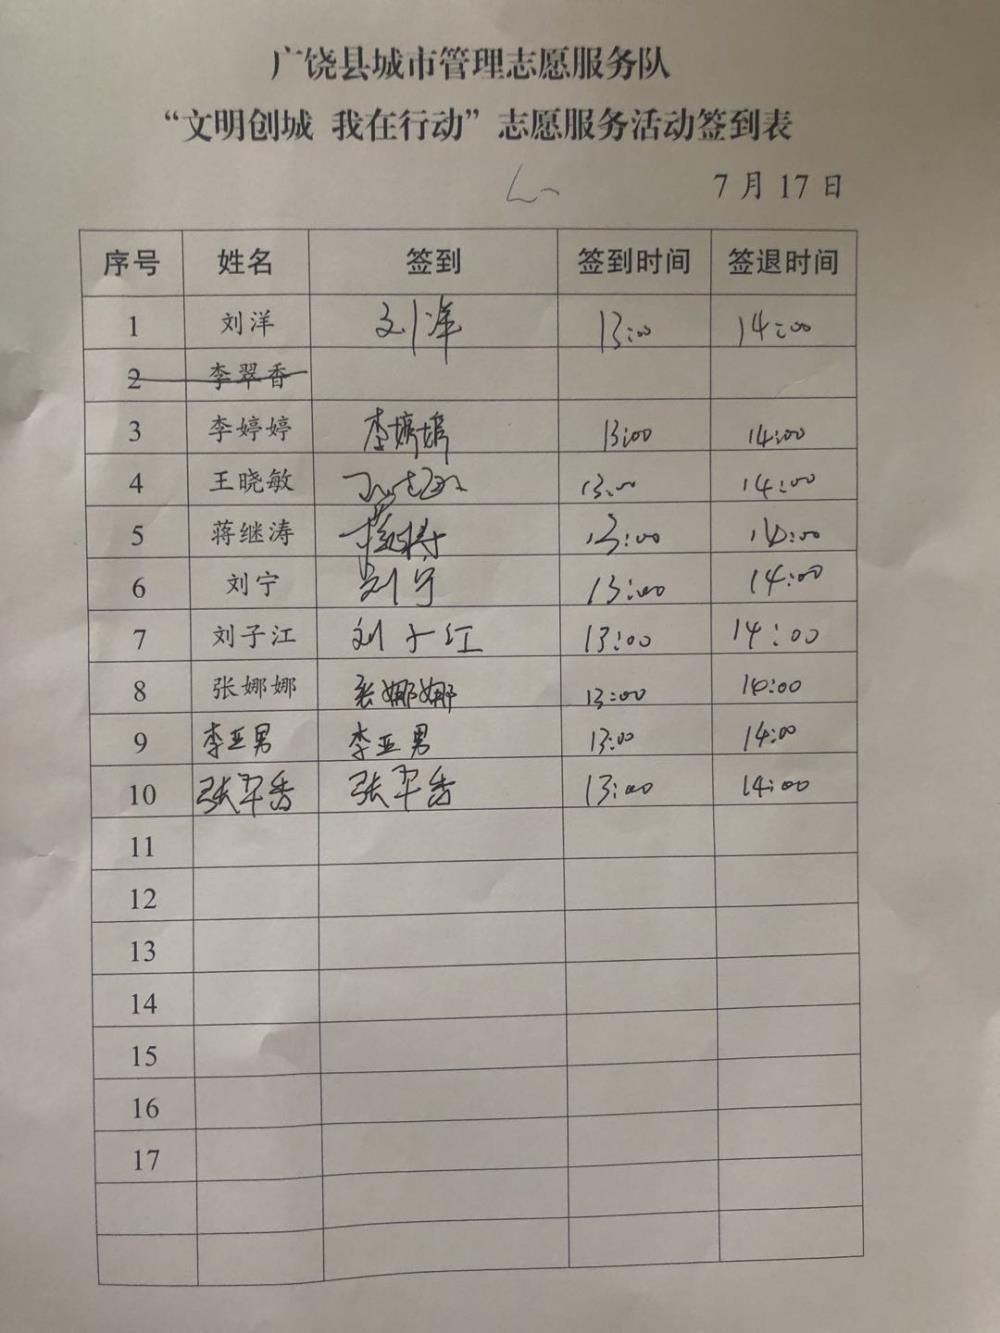 广饶县城市管理志愿服务队
“文明创城 我在行动”志愿服务活动签到表
7月17日
序号 姓名 签到 签到时间 签退时间
1 刘洋 刘洋 13:00 14:00
2 李翠香
3 李婷婷 李婷婷 13:00 14:00
4 王晓敏 王晓敏 13:00 14:00
5 蒋继涛 蒋继涛 13:00 14:00
6 刘宁 刘宁 13:00 14:00
7 刘子江 刘子江 13:00 14:00
8 张娜娜 张娜娜 13:00 14:00
9 李亚男 李亚男 13:00 14:00
10 张军香 张军香 13:00 14:00
11
12
13
14
15
16
17